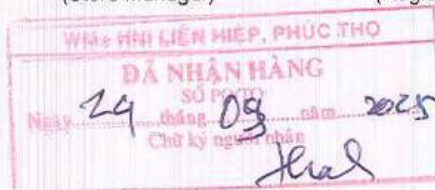 WM+ HNI LIÊN HIỆP, PHÚC THỌ
ĐÃ NHẬN HÀNG
SỐ PO/TO
Ngày 29 tháng 09 năm 2025
Chữ ký người nhận